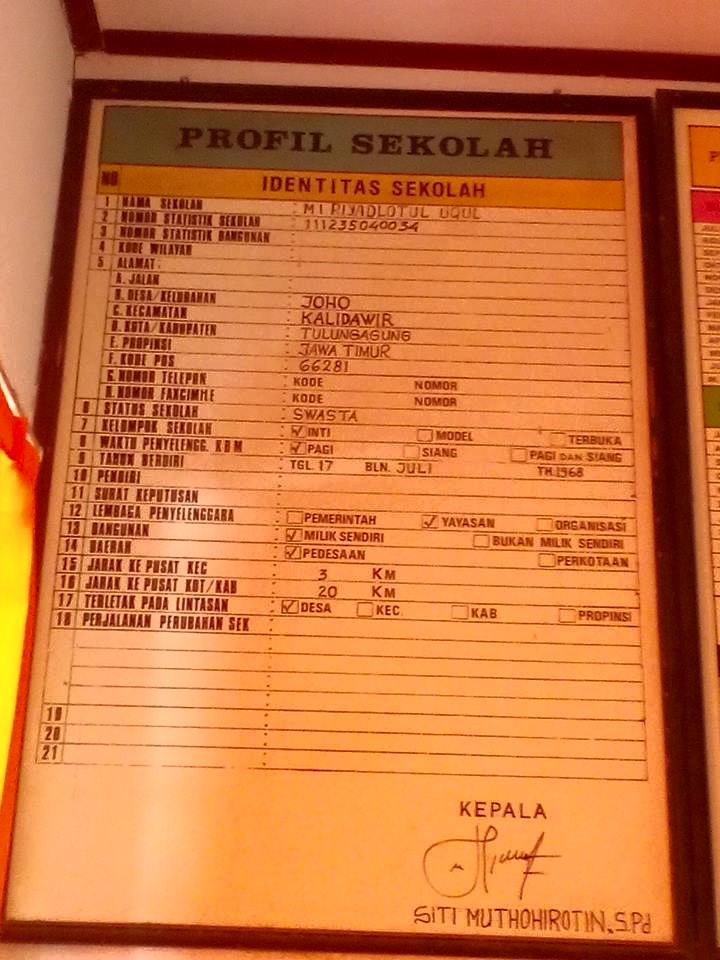 PROFIL SEKOLAH
NO IDENTITAS SEKOLAH
1 NAMA SEKOLAH : MI RIYADLOTUL UQUL
2 NOMOR STATISTIK SEKOLAH : 111235040034
3 NOMOR STATISTIK BANGUNAN :
4 KODE WILAYAH :
5 ALAMAT :
A. JALAN :
B. DESA/KELURAHAN : JOHO
C. KECAMATAN : KALIDAWIR
D. KOTA/KABUPATEN : TULUNGAGUNG
E. PROPINSI : JAWA TIMUR
F. KODE POS : 66281
G. NOMOR TELEPON : KODE NOMOR
H. NOMOR FAXCIMILE : KODE NOMOR
6 STATUS SEKOLAH : SWASTA
7 KELOMPOK SEKOLAH : ☑ INTI ☐ MODEL ☐ TERBUKA
8 WAKTU PENYELENGG. KBM : ☑ PAGI ☐ SIANG ☐ PAGI DAN SIANG
9 TAHUN BERDIRI : TGL. 17 BLN. JULI TH.1968
10 PENDIRI :
11 SURAT KEPUTUSAN :
12 LEMBAGA PENYELENGGARA : ☐ PEMERINTAH ☑ YAYASAN ☐ ORGANISASI
13 BANGUNAN : ☑ MILIK SENDIRI ☐ BUKAN MILIK SENDIRI
14 DAERAH : ☑ PEDESAAN ☐ PERKOTAAN
15 JARAK KE PUSAT KEC : 3 KM
16 JARAK KE PUSAT KOT/KAB : 20 KM
17 TERLETAK PADA LINTASAN : ☑ DESA ☐ KEC. ☐ KAB ☐ PROPINSI
18 PERJALANAN PERUBAHAN SEK :
19
20
21
KEPALA
SITI MUTHOHIROTIN, S.Pd